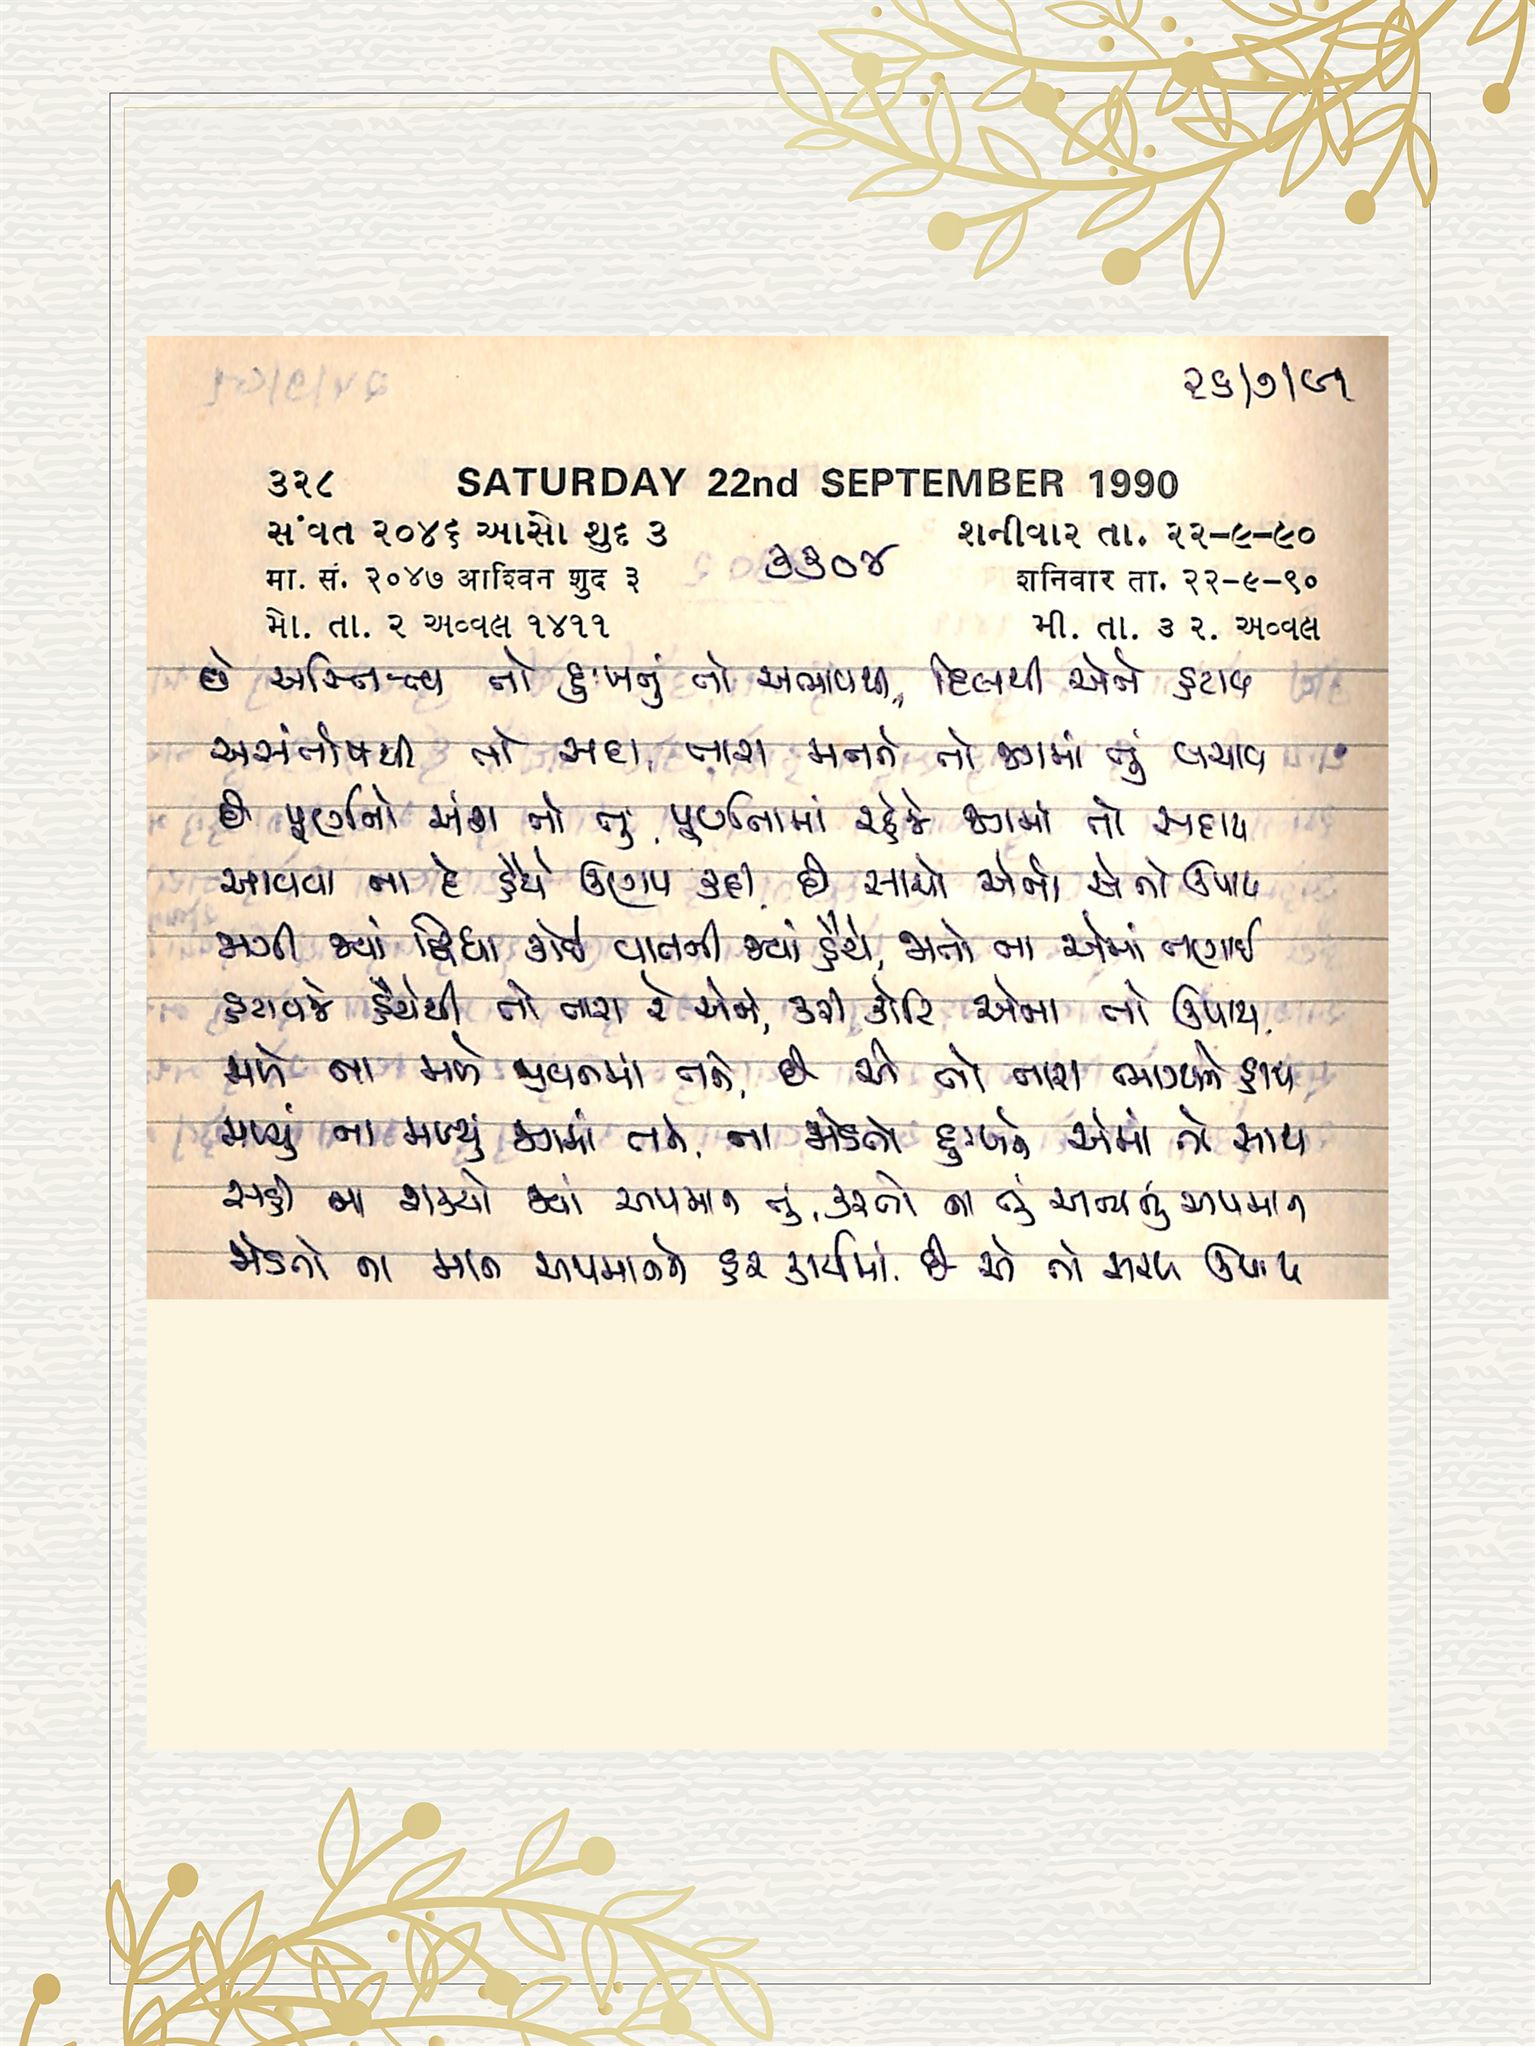 ૨૬/૭/૯૧
૩૨૮ SATURDAY 22nd SEPTEMBER 1990
સંવત ૨૦૪૬ આસો શુદ ૩ શનીવાર તા. ૨૨-૯-૯૦
૩૩૦૪
मा. सं. २०४७ आश्विन शुद ३ शनिवार ता. २२-९-९०
મો. તા. ૨ અવ્વલ ૧૪૧૧ મી. તા. ૩ ૨. અવ્વલ
છે અસ્તિત્વ તો દુઃખનું તો અભાવથી, દિલથી એને હટાવ
અસંતોષથી તો સદા, તારા મનને તો જગમાં તું બચાવ
છે પૂર્ણનો અંશ તો તું, પૂર્ણતામાં રહેજે જગમાં તો સદાય
આવવા ના દે હૈયે ઉણપ કદી, છે સાચો એનો એ તો ઉપાય
જાગી જ્યાં દ્વિધા કોઈ વાતની જ્યાં હૈયે, જાતો ના એમાં તણાઈ
હટાવજે હૈયેથી તો તારા રે એને, કરી કોશિ એના તો ઉપાય
મળે ના મળે જીવનમાં તને, છે એ તો તારા ભાગ્યને હાથ
મળ્યું ના મળ્યું જગમાં તને, ના જોડતો દુઃખને એમાં તો સાથ
સહી ના શક્યો જ્યાં અપમાન તું, કરતો ના તું અન્યનું અપમાન
જોડતો ના માન અપમાનને હર કાર્યમાં, છે એ તો સરળ ઉપાય